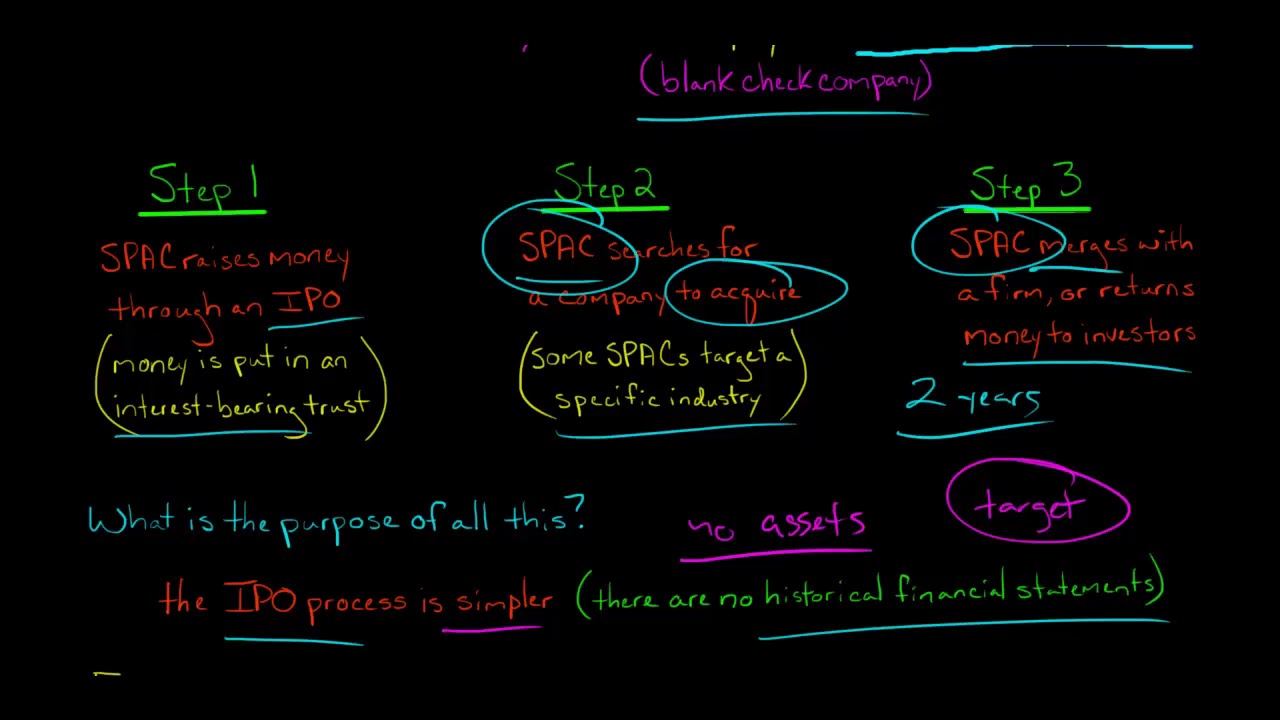 (blank check company)
Step 1
SPAC raises money
through an IPO
(money is put in an
interest-bearing trust)
Step 2
SPAC searches for
a company to acquire
(some SPACs target a
specific industry)
Step 3
SPAC merges with
a firm, or returns
money to investors
2 years
target
What is the purpose of all this?
no assets
the IPO process is simpler (there are no historical financial statements)